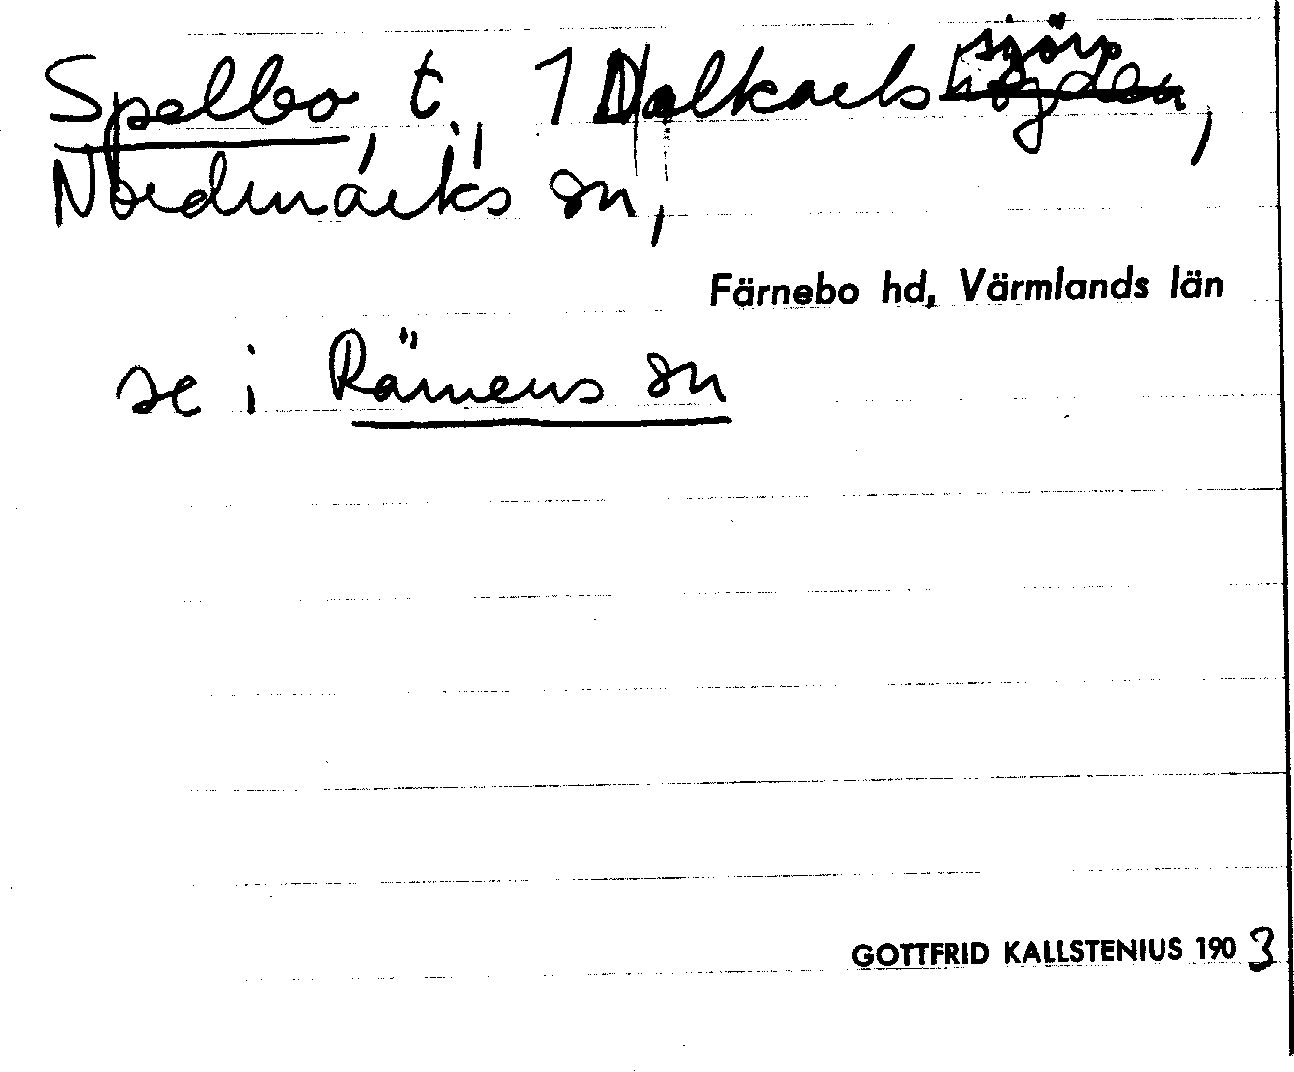 Spelbo, t., 1 Dalkarlssjörn,
Nordmarks sn,
Färnebo hd, Värmlands län
se i Rämens sn
GOTTFRID KALLSTENIUS 1903